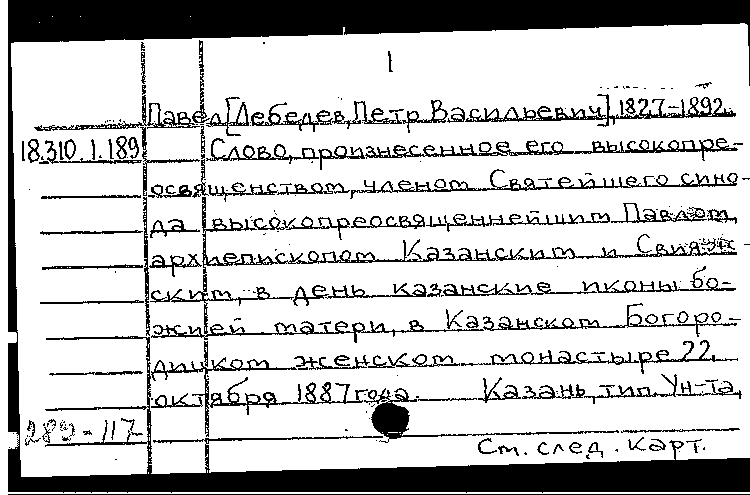 1
Павел [Лебедев, Петр Васильевич], 1827-1892.
18.310.1.189 Слово, произнесенное его высокопре-
освященством, членом Святейшего сино-
да высокопреосвященнейшим Павлом,
архиепископом Казанским и Свияж-
ским, в день казанские иконы бо-
жией матери, в Казанском Богоро-
дицком женском монастыре 22.
октября 1887 года. Казань, тип. Ун-та,
289-117
См. след. карт.